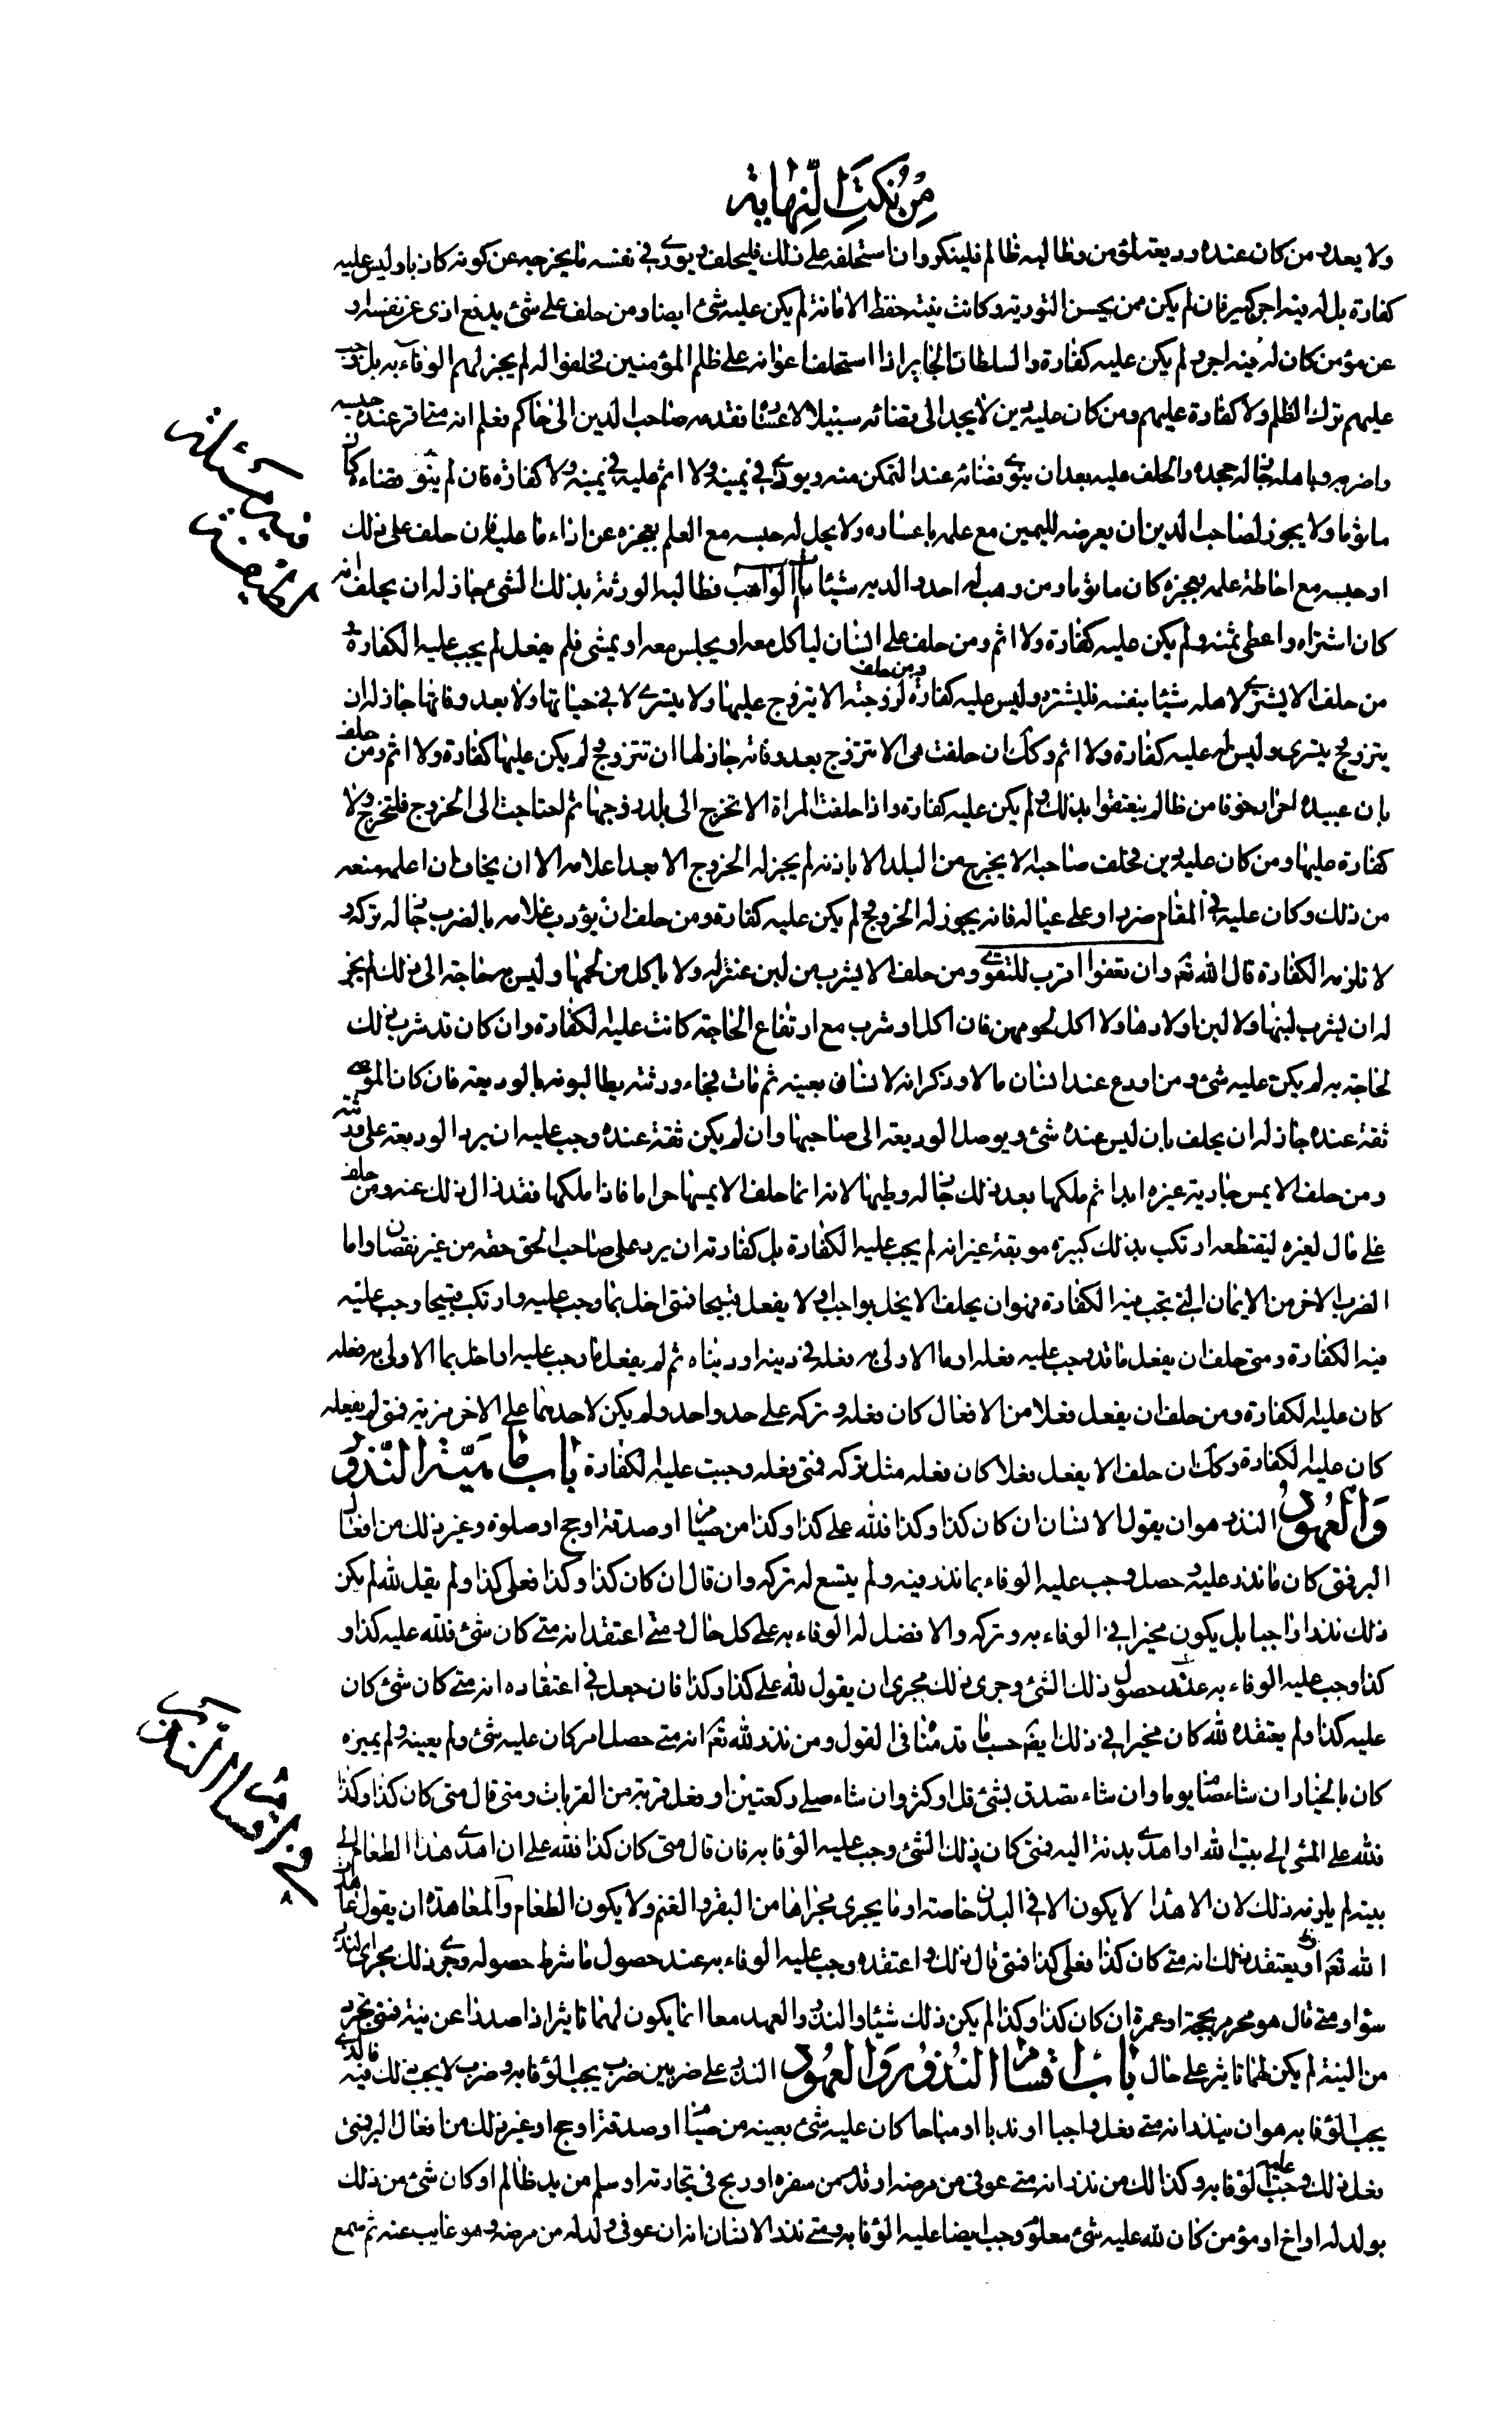 من نكت النهاية
ولا يعد من كان عنده وديعة لمؤمن وطالبه ظالم فلينكر وان استحلفه على ذلك فليحلف ويورى في نفسه ما يخرجه عن كونه كاذبا وليس عليه
كفارة بل له فيه اجر كبير فان لم يكن ممن يحسن التورية وكانت نيته حفظ الامانة لم يكن عليه شئ ايضا ومن حلف على شئ يدفع اذى عن نفسه او
عن مؤمن كان له فيه اجر ولم يكن عليه كفارة والسلطان الجاير اذا استحلف اعوانه على ظلم المؤمنين فحلفوا له لم يجز لهم الوفاء به بل وجب
عليهم ترك الظلم ولا كفارة عليهم ومن كان عليه دين لا يجد الى قضائه سبيلا لاعساره فقدمه صاحب الدين الى حاكم فعلم انه متى اقر عنده حبسه
واضر به وباهله جاز له جحده والحلف عليه بعد ان ينوى قضائه عند التمكن منه ويورى في يمينه ولا اثم عليه في يمينه ولا كفارة فان لم ينو قضاءه كان
ماثوما ولا يجوز لصاحب الدين ان يعرضه لليمين مع علمه باعساره ولا يحل له حبسه مع العلم بعجزه عن اداء ما عليه فان حلف على ذلك
او حبسه مع احاطة علمه بعجزه كان ماثوما ومن وهب له احد والديه شيئا ثم مات الواهب فطالبه الورثة بذلك الشئ جاز له ان يحلف انه
كان اشتراه واعطى ثمنه ولم يكن عليه كفارة ولا اثم ومن حلف على انسان لياكل معه او يجلس معه او يمشى فلم يفعل لم يجب عليه الكفارة و
من حلف الا يشترى لاهله شيئا بنفسه فليشتره وليس عليه كفارة ومن حلف لزوجته الا يتزوج عليها ولا يتسرى لا في حياتها ولا بعد وفاتها جاز له ان
يتزوج ويتسرى وليس له عليه كفارة ولا اثم وكك ان حلفت هى الا تتزوج بعد وفاته جاز لها ان تتزوج ولم يكن عليها كفارة ولا اثم ومن حلف
بان عبيده احرار خوفا من ظالم لم ينعتقوا بذلك ولم يكن عليه كفارة واذا حلفت المراة الا تخرج الى بلد زوجها ثم احتاجت الى الخروج فلتخرج ولا
كفارة عليها ومن كان عليه دين فحلف صاحبه الا يخرج من البلد الا باذنه لم يجز له الخروج الا بعد اعلامه الا ان يخاف ان اعلمه منعه
من ذلك وكان عليه في المقام ضررا او على عياله فانه يجوز له الخروج ولم يكن عليه كفارة ومن حلف ان يؤدب غلامه بالضرب جاز له تركه و
لا تلزمه الكفارة قال الله تعم وان تعفوا اقرب للتقوى ومن حلف الا يشرب من لبن عنز له ولا ياكل من لحمها وليس به حاجة الى ذلك لم يجز
له ان يشرب لبنها ولا لبن اولادها ولا اكل لحومهن فان اكل او شرب مع ارتفاع الحاجة كانت عليه الكفارة وان كان قد شرب ذلك
لحاجة به لم يكن عليه شئ ومن اودع عند انسان مالا وذكر انه لانسان بعينه ثم مات فجاء ورثته يطالبونه بالوديعة فان كان الموصى
ثقة عنده جاز له ان يحلف بان ليس عنده شئ ويوصل الوديعة الى صاحبها وان لم يكن ثقة عنده وجب عليه ان يرد الوديعة على ورثته
ومن حلف الا يمس جارية غيره ابدا ثم ملكها بعد ذلك جاز له وطيها لانه انما حلف الا يمسها حراما فاذا ملكها فقد زال ذلك عنه ومن حلف
على مال لغيره ليقتطعه ارتكب بذلك كبيرة موبقة غير انه لم يجب عليه الكفارة بل كفارته ان يرد على صاحب الحق حقه من غير نقصان واما
الضرب الاخر من الايمان التي تجب فيه الكفارة فهو ان يحلف الا يخل بواجب او لا يفعل قبيحا فمتى اخل بما وجب عليه او ارتكب قبيحا وجب عليه
فيه الكفارة ومتى حلف ان يفعل ما قد وجب عليه فعله او ما الاولى به فعله في دينه او دنياه ثم لم يفعل ما وجب عليه او اخل بما الاولى به فعله
كان عليه الكفارة ومن حلف ان يفعل فعلا من الافعال كان فعله وتركه على حد واحد ولم يكن لاحدهما على الاخر مزية فمتى لم يفعله
كان عليه الكفارة وكك ان حلف الا يفعل فعلا كان فعله مثل تركه فمتى فعله وجبت عليه الكفارة باب ماهية النذور
والعهود النذر هو ان يقول الانسان ان كان كذا وكذا فلله على كذا وكذا من صيام او صدقة او حج او صلوة وغير ذلك من افعال
البر فمتى كان ما نذر عليه وحصل وجب عليه الوفاء بما نذر فيه ولم يتسع له تركه وان قال ان كان كذا وكذا فعلى كذا ولم يقل لله لم يكن
ذلك نذرا واجبا بل يكون مخيرا في الوفاء به وتركه والافضل له الوفاء به على كل حال ومتى اعتقد انه متى كان شئ فلله عليه كذا و
كذا وجب عليه الوفاء به عند حصول ذلك الشئ وجرى ذلك مجرى ان يقول لله على كذا وكذا فان جعل في اعتقاده انه متى كان شئ كان
عليه كذا ولم يعتقده لله كان مخيرا في ذلك يضم حسب ما قدمناه في القول ومن نذر لله تعم انه متى حصل امر كان عليه شئ ولم يعينه ولم يميزه
كان بالخيار ان شاء صام يوما وان شاء تصدق بشئ قل او كثر وان شاء صلى ركعتين او فعل قربة من القربات ومتى قال متى كان كذا وكذا
فلله على المشى الى بيت الله او اهدى بدنة اليه فمتى كان ذلك الشئ وجب عليه الوفا به فان قال متى كان كذا فلله على ان اهدى هذا الطعام الى
بيته لم يلزمه ذلك لان الاهداء لا يكون الا في البدن خاصة او ما يجرى مجراها من البقر والغنم ولا يكون الطعام والمعاهدة ان يقول عاهدت
الله تعم او يعتقد ذلك انه متى كان كذا فعلى كذا فمتى قال ذلك او اعتقده وجب عليه الوفاء به عند حصول ما شرط حصوله وجرى ذلك مجرى النذر
سواء ومتى قال هو محرم بحجة او عمرة ان كان كذا وكذا لم يكن ذلك شيئا والنذر والعهد معا انما يكون لهما تاثير اذا صدرا عن نية فمتى تجرد
من النية لم يكن لهما تاثير على حال باب اقسام النذور والعهود النذر على ضربين ضرب يجب الوفا به وضرب لا يجب ذلك فيه فالذى
يجب الوفا به هو ان ينذر انه متى فعل واجبا او ندبا او مباحا كان عليه شئ بعينه من صيام او صدقة او حج او غير ذلك من افعال البر فمتى
فعل ذلك وجب عليه الوفا به وكذلك من نذر انه متى عوفى من مرضه او قدم من سفره او ربح في تجارته او سلم من يد ظالم او كان شئ من ذلك
بولد له او اخ او مؤمن كان لله عليه شئ معلوم وجب ايضا عليه الوفا به ومتى نذر الانسان انه ان عوفى ولد له من مرضه وهو غايب عنه ثم سمع